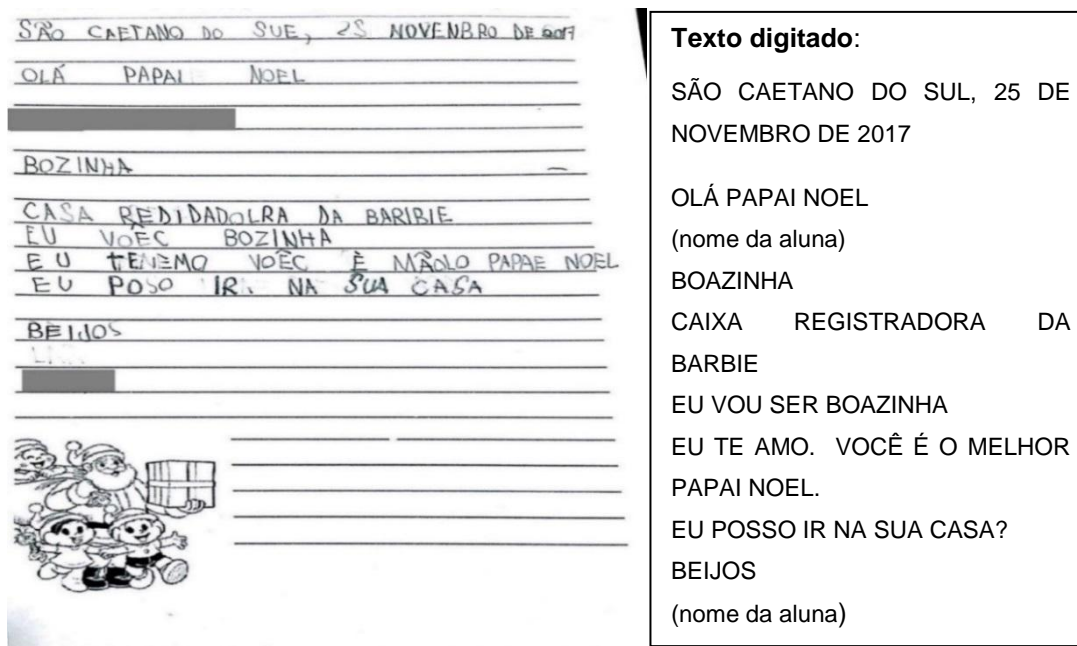 SÃO CAETANO DO SUE, 25 NOVENBRO DE 2017
OLÁ PAPAI NOEL
BOZINHA
CASA REDIDADOLRA DA BARIBIE
EU VOÊC BOZINHA
EU TENEMO VOÊC É MÃOLO PAPAE NOEL
EU POSO IR NA SUA CASA
BEIJOS
Texto digitado:
SÃO CAETANO DO SUL, 25 DE
NOVEMBRO DE 2017
OLÁ PAPAI NOEL
(nome da aluna)
BOAZINHA
CAIXA REGISTRADORA DA
BARBIE
EU VOU SER BOAZINHA
EU TE AMO. VOCÊ É O MELHOR
PAPAI NOEL.
EU POSSO IR NA SUA CASA?
BEIJOS
(nome da aluna)